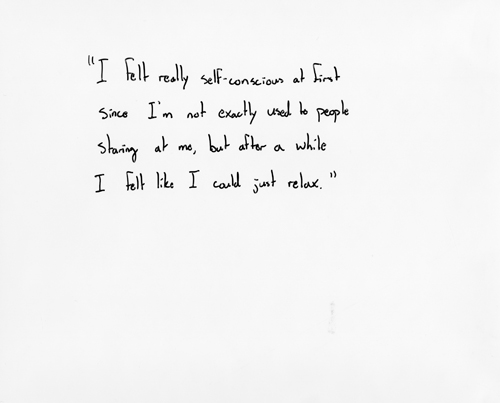 "I felt really self-conscious at first
since I'm not exactly used to people
staring at me, but after a while
I felt like I could just relax."